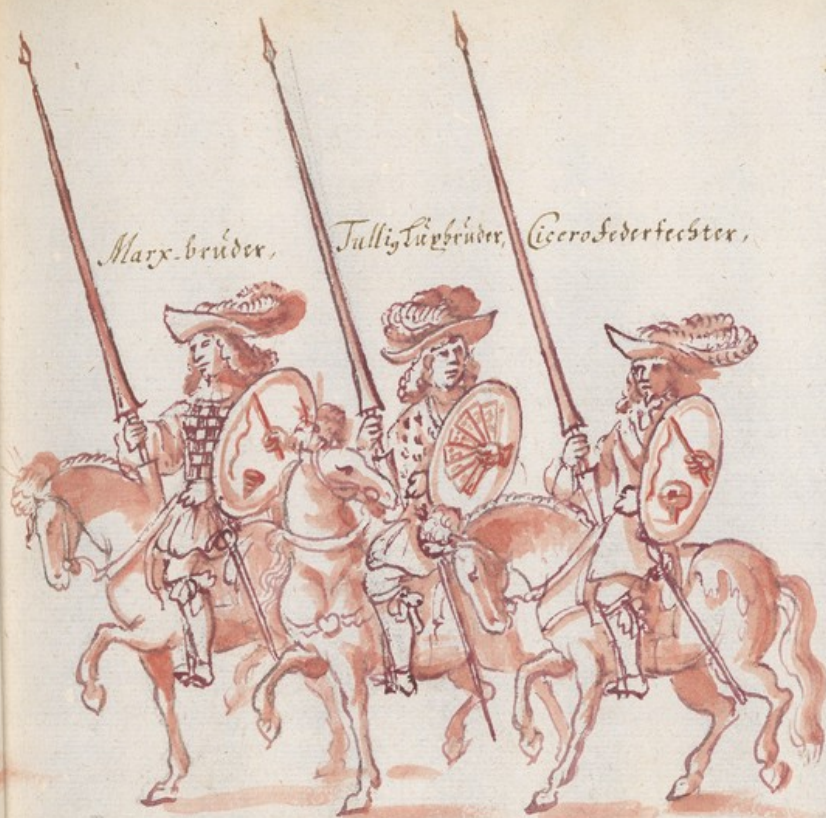 Marx-brüder, Tulliꝰ Luxbrüder, Cicero Federfechter,